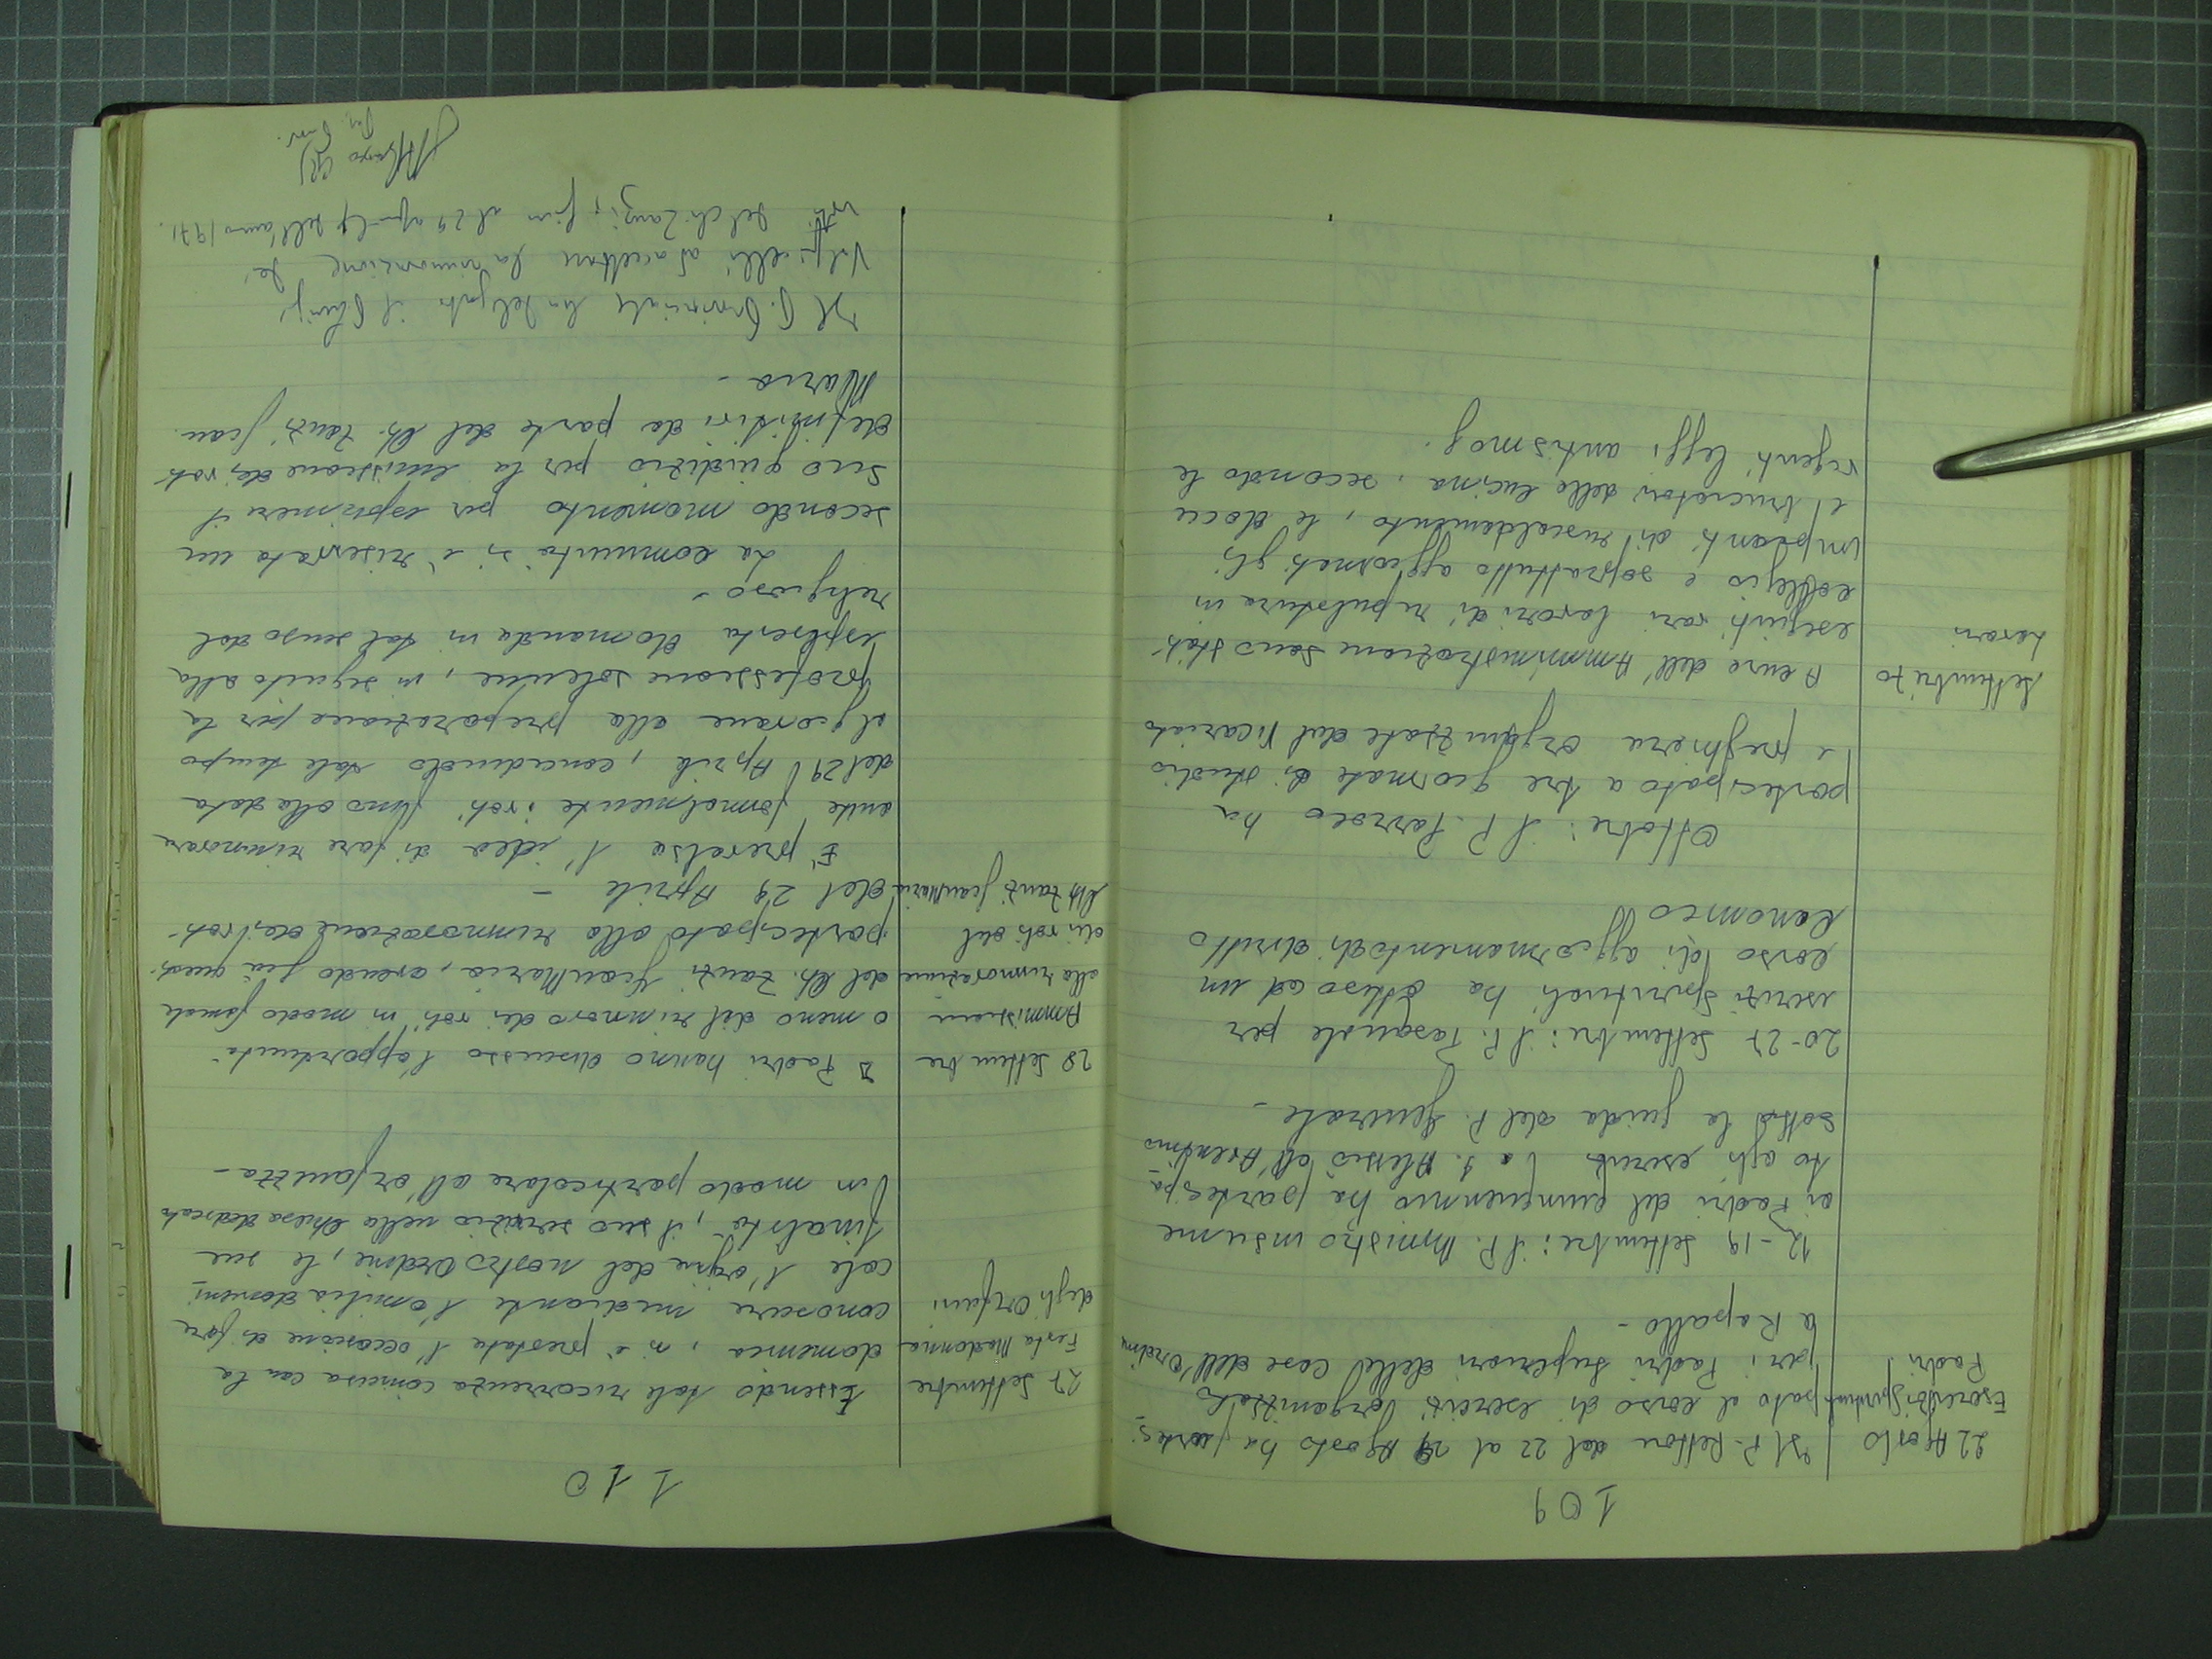 109
22 Agosto
Esercizi Spirituali
Padri
Il P. Rettore dal 22 al 29 Agosto ha parteci-
pato al corso di esercizi organizzato
per i Padri Superiori delle Case dell'Ordine
a Rapallo -
12 - 19 Settembre: il P. Ministro insieme
ai Padri del quinquennio ha partecipa-
to agli esercizi a S. Alessio all'Aventino
sotto la guida del P. Generale -
20-27 Settembre: il P. Pasquale per
esercizi spirituali ha atteso ad un
corso di aggiornamento di diritto
Canonico
Ottobre: il P. Parroco ha
partecipato a tre giornate di studio
e preghiera organizzate dal Vicariato
Settembre 70
Lavori
A cura dell'Amministrazione sono stati
eseguiti vari lavori di ripulitura in
collegio e soprattutto aggiornati gli
impianti di riscaldamento, le docce
e i bruciatori della cucina, secondo le
vigenti leggi antismog.
110
27 Settembre
Festa Madonna
degli Orfani
Essendo tale ricorrenza coincisa con la
domenica, si è prestata l'occasione di fare
conoscere mediante l'omilia domeni-
cale l'origine del nostro Ordine, le sue
finalità, il suo servizio nella Chiesa dedicato
in modo particolare all'orfanezza -
28 Settembre
Ammissione
alla rinnovazione
dei voti del
Ch. Zanzi GianMaria
I Padri hanno discusso l'opportunità
o meno del rinnovo dei voti in modo formale
del Ch. Zanzi GianMaria, avendo già questi
partecipato alla rinnovazione dei voti
del 29 Aprile -
È prevalsa l'idea di fare rinnovare
anche formalmente i voti fino alla data
del 29 Aprile, concedendo tale tempo
al giovane alla preparazione per la
professione solenne, in seguito alla
esplicita domanda in tal senso del
religioso -
La comunità si è riservata un
secondo momento per esprimere il
suo giudizio per la emissione dei voti
definitivi da parte del Ch. Zanzi Gian
Maria -
Il P. Provinciale ha delegato il
ad accettare la rinnovazione dei
voti del ch. Zanzi, fino al 29 aprile dell'anno 1971.